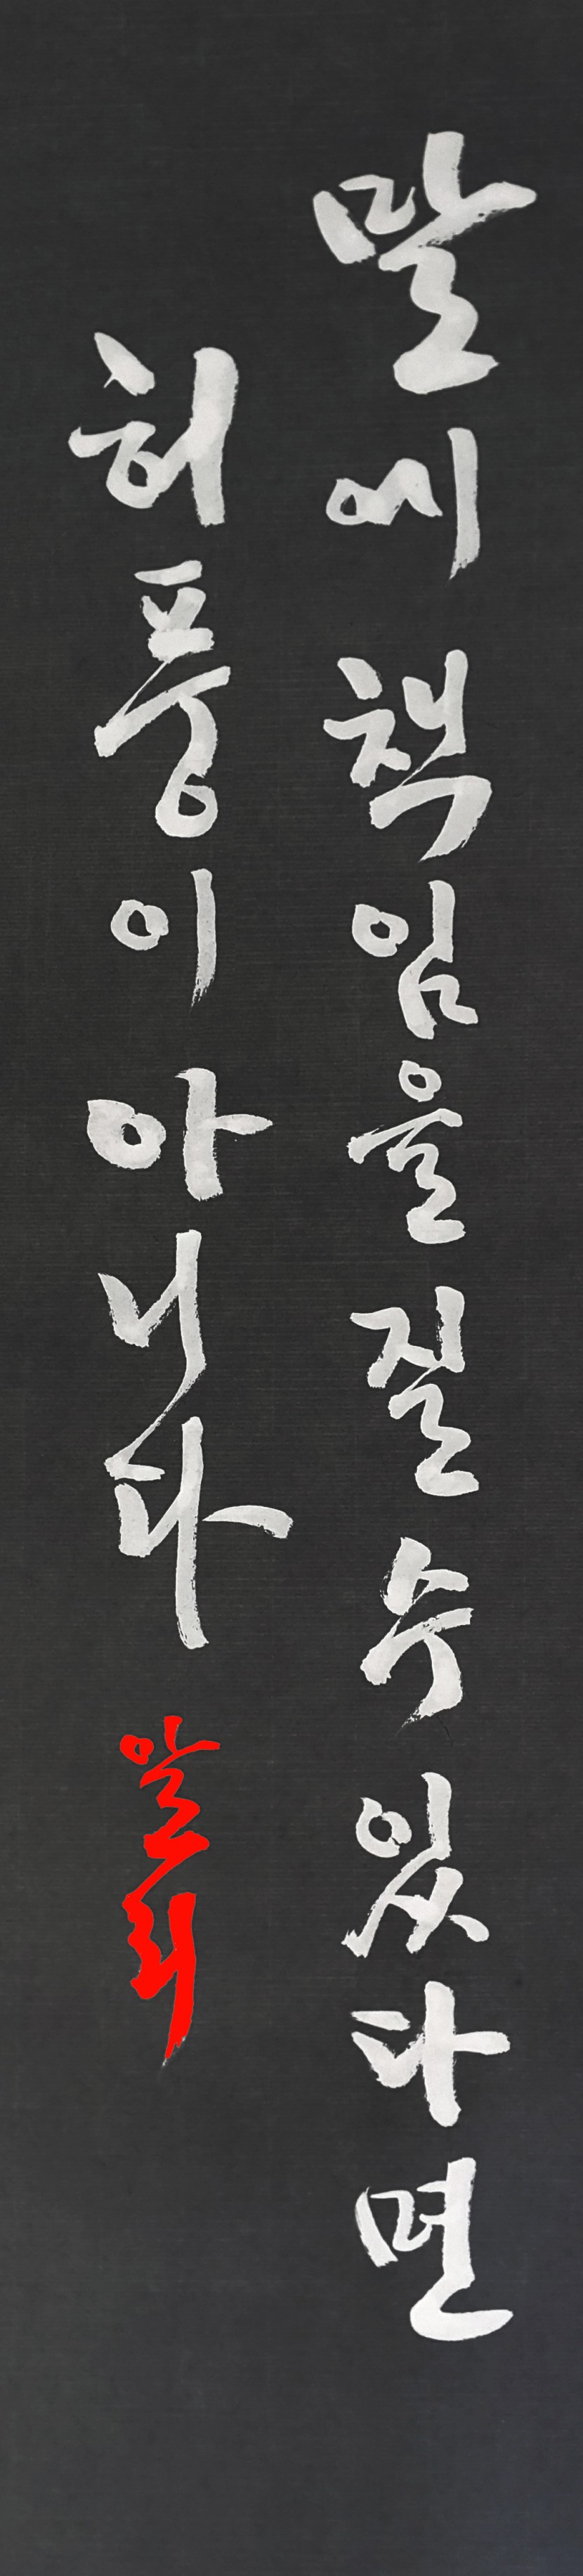 말에 책임을 질 수 있다면
허풍이 아니다